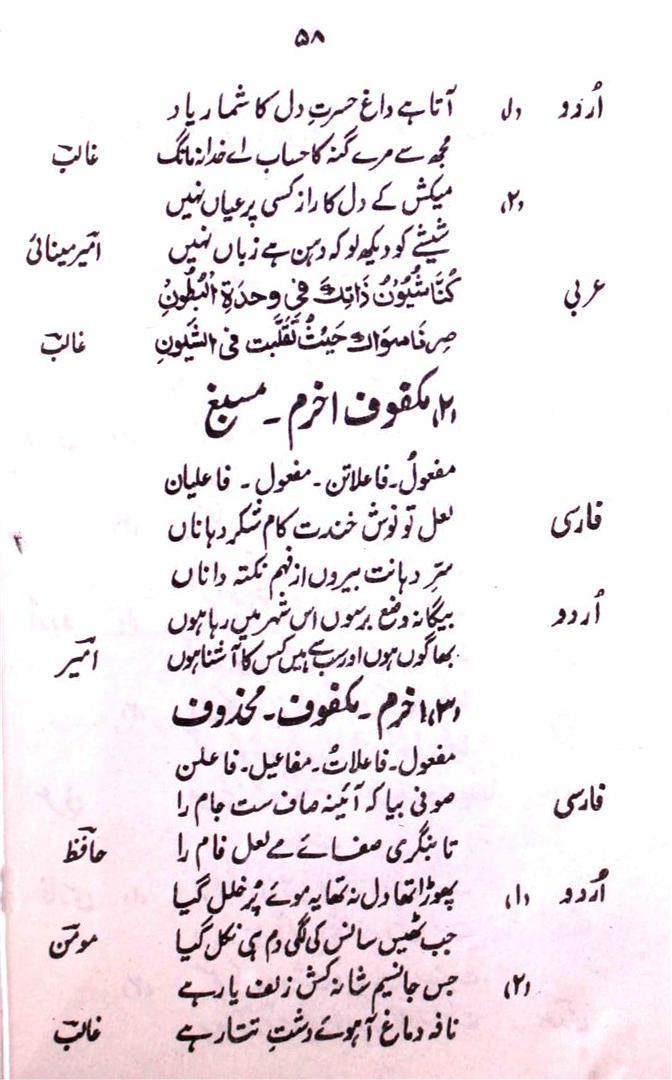 ۵۸
اُردو (۱) آتا ہے داغِ حسرتِ دل کا شمار یاد
مجھ سے مرے گنہ کا حساب اے خدا نہ مانگ غالبؔ
(۲) میکش کے دل کا راز کسی پر عیاں نہیں
شیشے کو دیکھ لو کہ دہن ہے زباں نہیں امیرؔ مینائی
عربی كُنَّا شُيُوْنُ ذَاتِكَ فِي وحدةِ الْبُطُونِ
صرنا سواك حَيْثُ تَقَلَّبت فی الشیونِ غالبؔ
(۲) مکفوف اخرم ۔ مسبغ
مفعولُ ۔ فاعلاتن ۔ مفعول ۔ فاعلیان
فارسی لعل تو نوش خندت کام شکر دہاناں
سِرّ دہانت بیروں از فہم نکتہ داناں
اُردو بیگانہ وضع برسوں اس شہر میں رہا ہوں
بھاگوں ہوں اور سب سے میں کس کا آشنا ہوں امیرؔ
(۳) اخرم ۔ مکفوف ۔ محذوف
مفعول ۔ فاعلاتُ ۔ مفاعیل ۔ فاعلن
فارسی صوفی بیا کہ آئینہ صاف ست جام را
تا بنگری صفائے مے لعل فام را حافظؔ
اُردو (۱) پھوڑا تھا دل نہ تھا یہ موئے پر خلل گیا
جب ٹھیس سانس کی لگی دم ہی نکل گیا مومنؔ
(۲) جس جا نسیم شانہ کش زلف یار ہے
نافہ دماغ آہوئے دشتِ تتار ہے غالبؔ